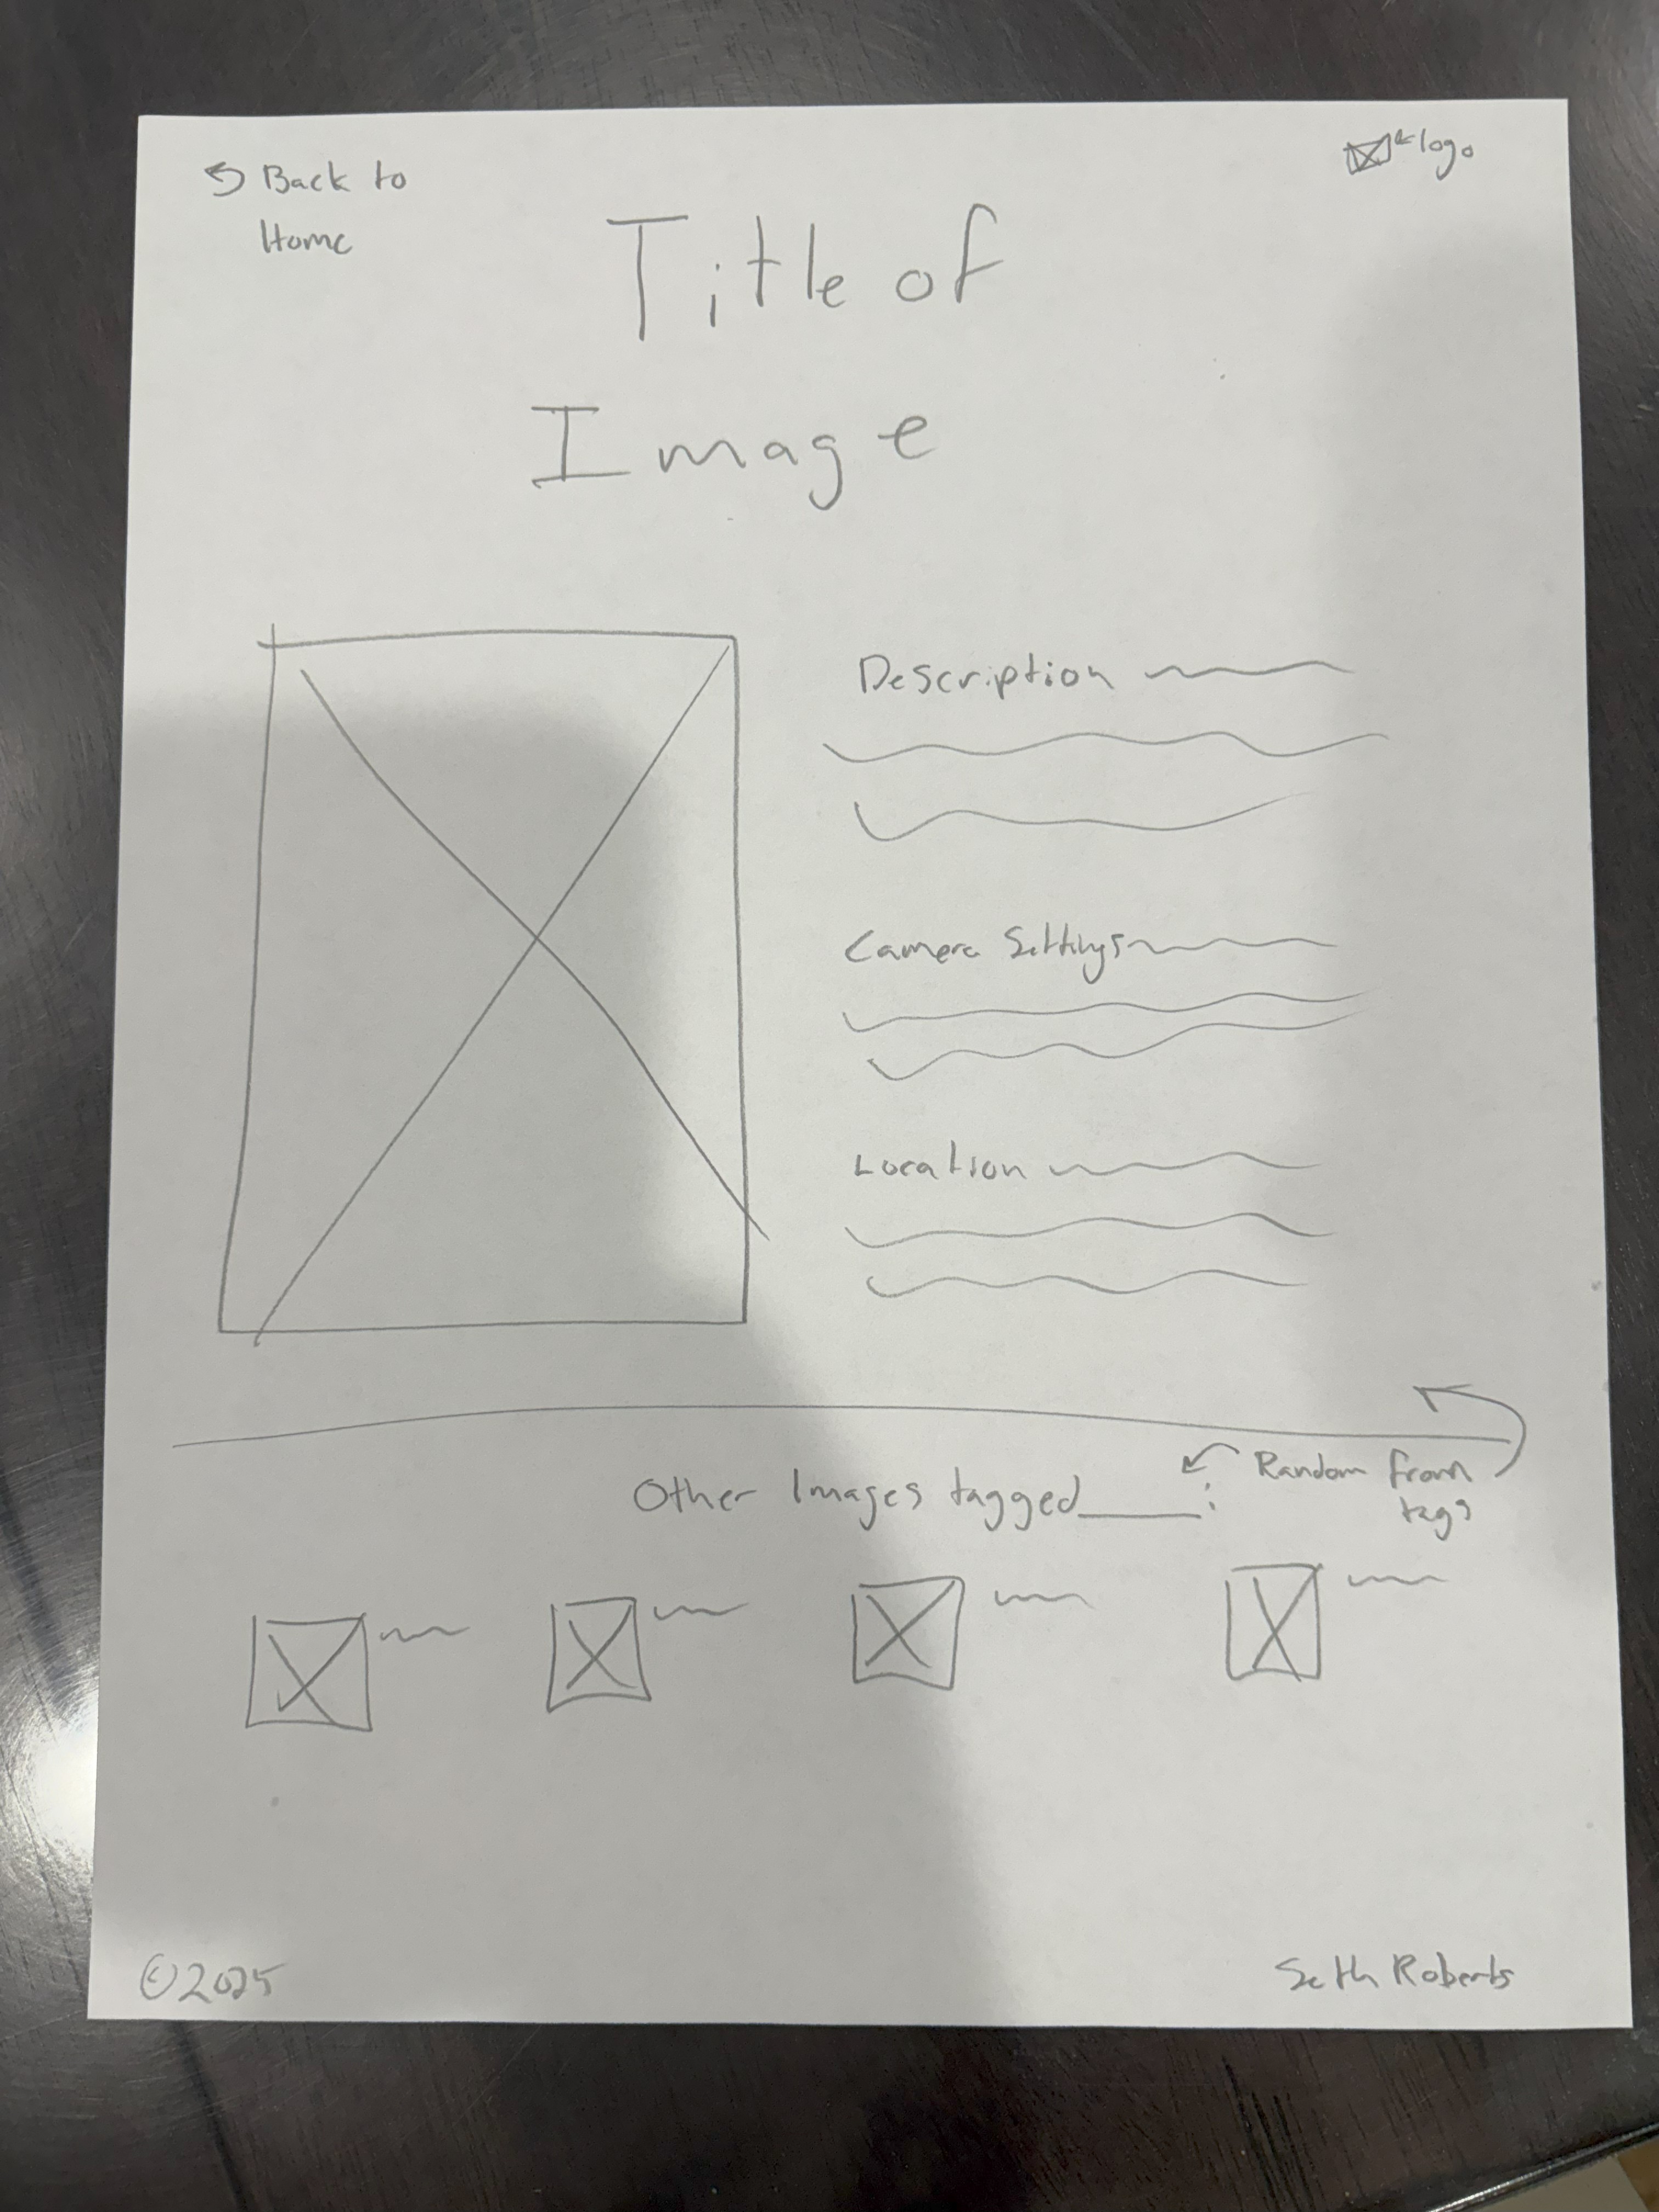 Back to
Home
logo
Title of
Image
Description
Camera Settings
Location
Other Images tagged_____:
Random from
tags
©2025
Seth Roberts